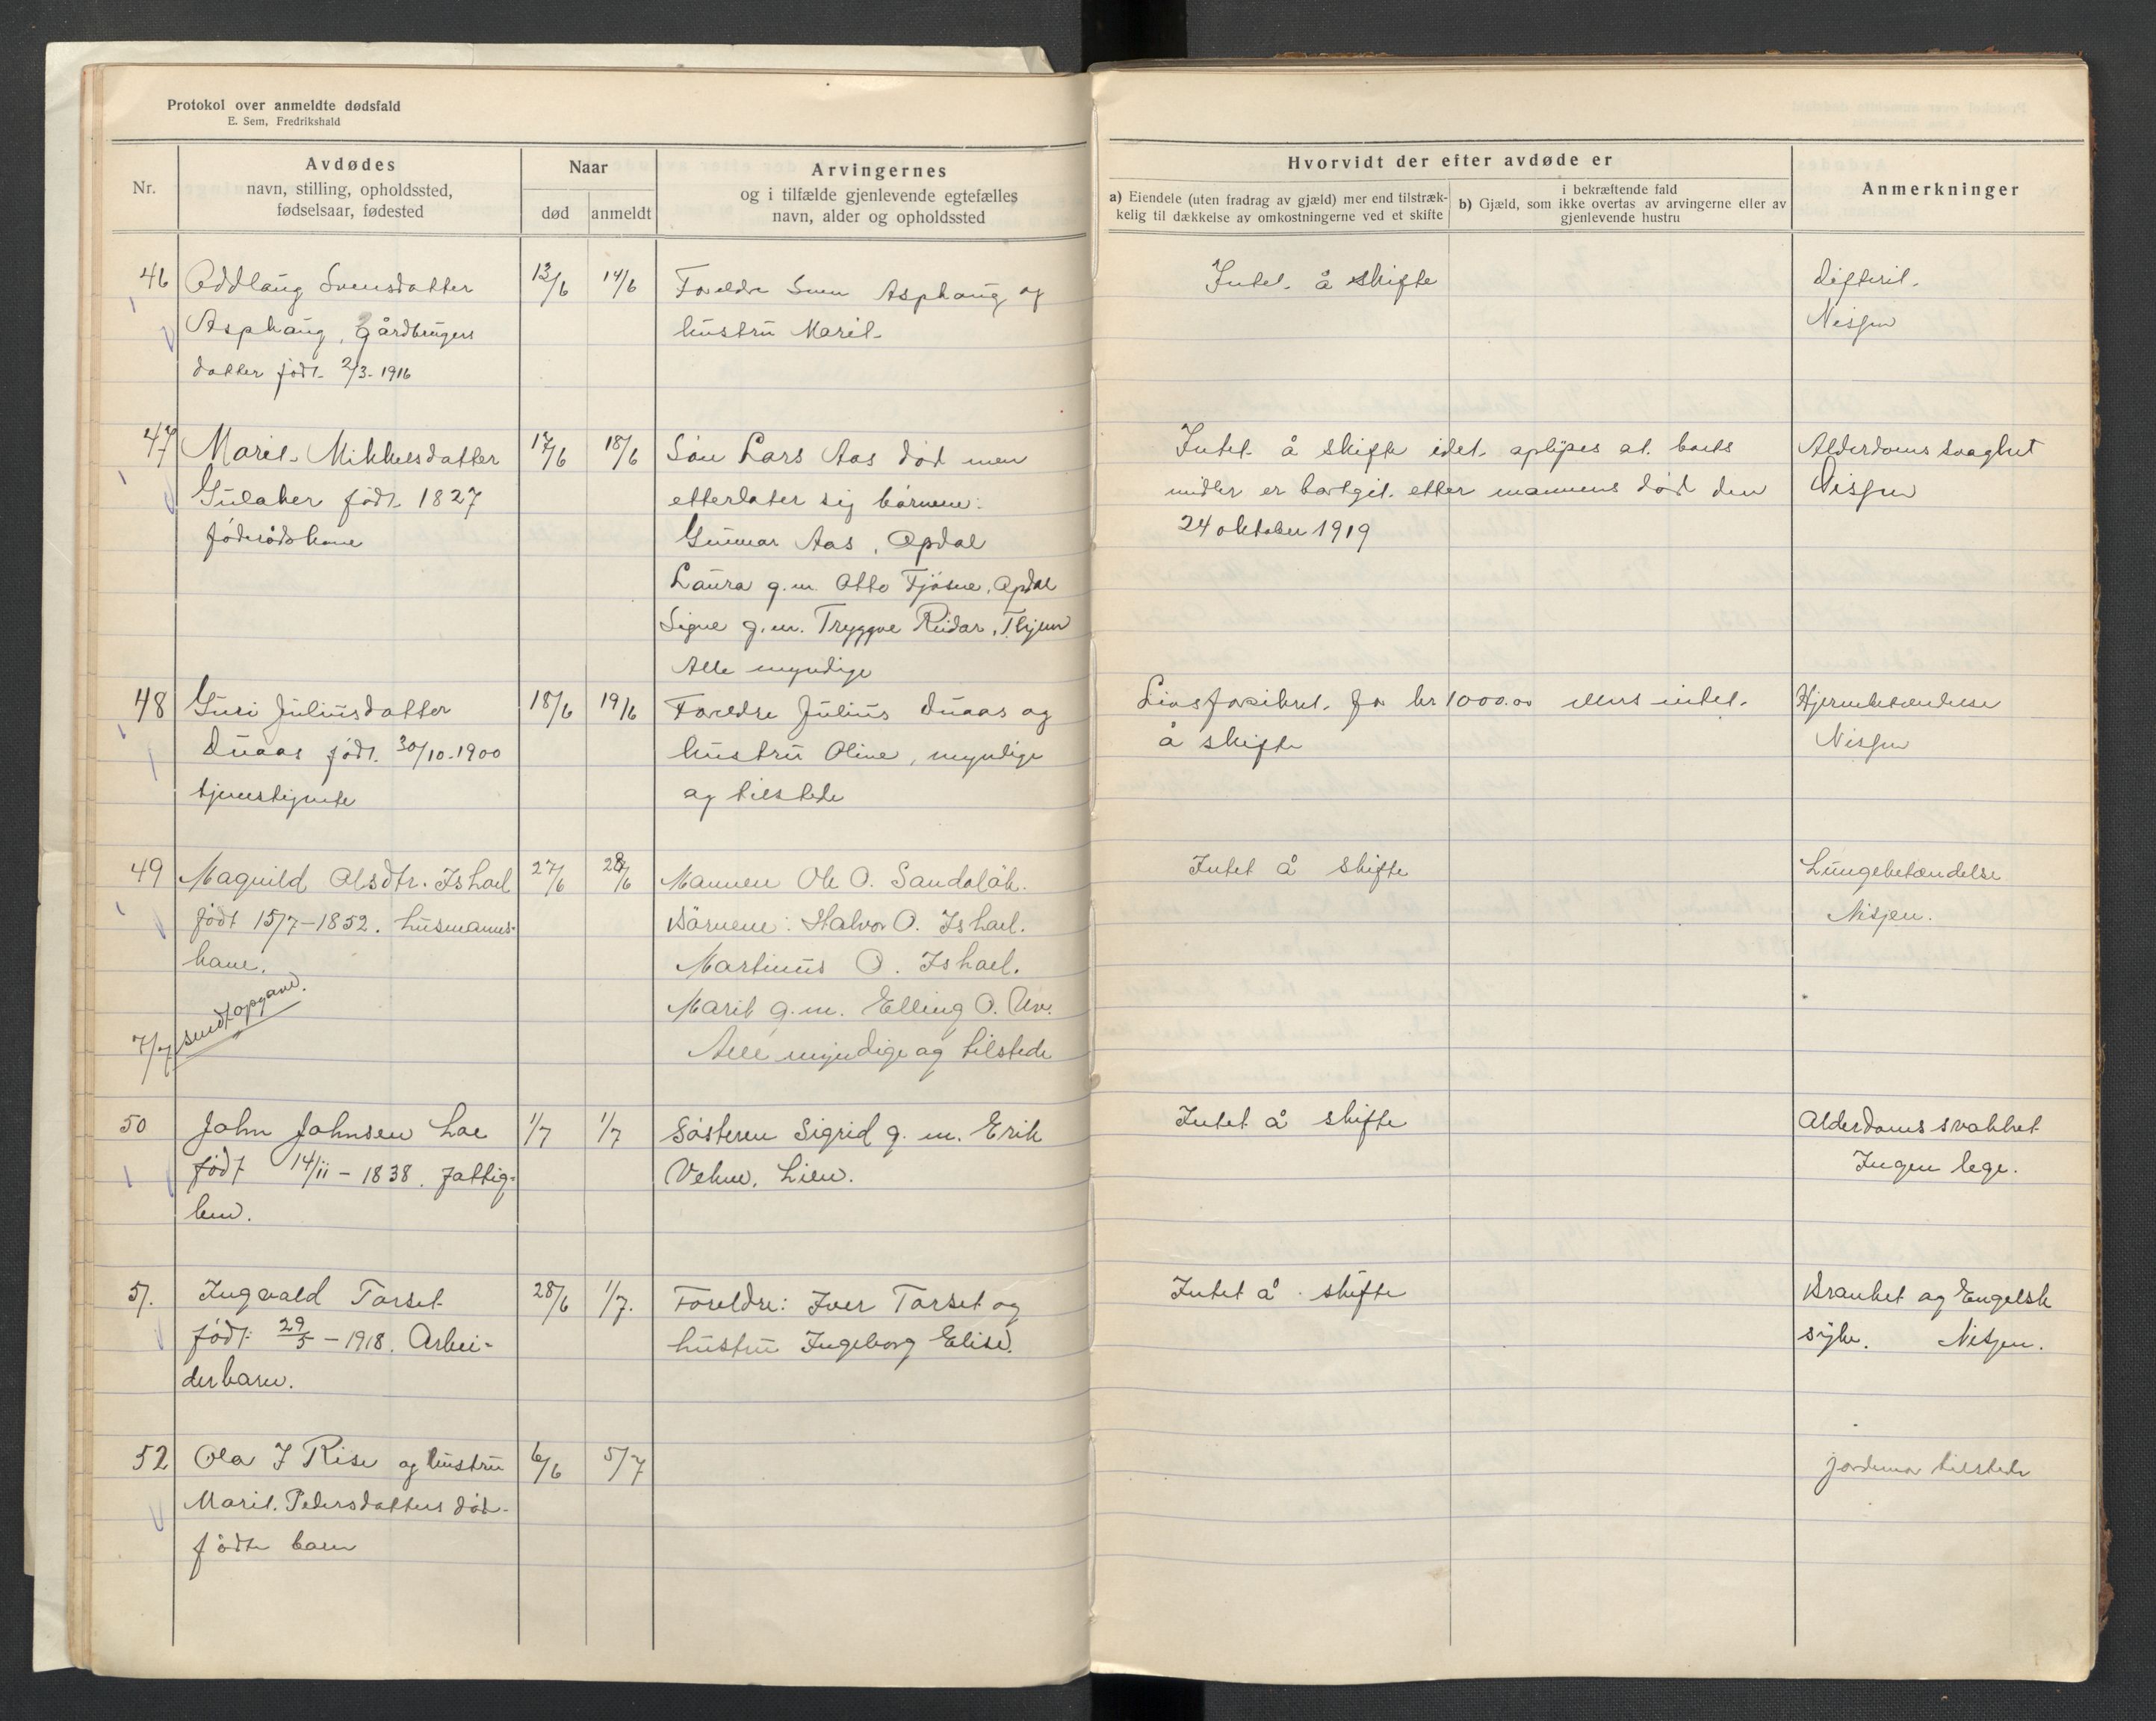 Protokol over anmeldte dødsfald
E. Sem, Fredrikshald
Nr.
Avdødes
navn, stilling, opholdssted,
fødselsaar, fødested
Naar
død
anmeldt
Arvingernes
og i tilfælde gjenlevende egtefælles
navn, alder og opholdssted
Hvorvidt der efter avdøde er
a) Eiendele (uten fradrag av gjæld) mer end tilstræk-
kelig til dækkelse av omkostningerne ved et skifte
i bekræftende fald
b) Gjæld, som ikke overtas av arvingerne eller av
gjenlevende hustru
Anmerkninger
46 Oddlaug Svensdatter
Asphaug, gårdbrugers
datter født 2/3-1916
13/6 14/6
Foreldre Sven Asphaug og
hustru Marit
Intet å skifte
Difterit.
Nisjen
47 Marit Mikkelsdatter
Gulaker født 1827
føderådskone
17/6 18/6
Søn Lars Aas død men
etterlater sig børnene:
Gunnar Aas, Opdal
Laura g.m. Otto Fjøsne, Opdal
Signe g.m. Tryggve Reidar, T.hjem
Alle myndige
Intet å skifte idet oplyses at boets
midler er bortgit etter mannens død den
24 oktober 1919
Alderdoms svaghet
Nisjen
48 Guri Juliusdatter
Duaas født 30/10-1900
tjenestejente
18/6 19/6
Foreldre Julius Duaas og
hustru Oline, myndige
og tilstede
Livsforsikret for kr 1000.00 ellers intet
å skifte
Hjernebetændelse
Nisjen
49 Magnild Olsdtr. Ishoel
født 15/7-1852. husmanns-
kone.
7/7 sendt opgave.
27/6 28/6
Mannen Ole O. Sandsløk.
Børnene: Halvor O. Ishoel.
Martinus O. Ishoel.
Marit g.m. Elling O. Uv.
Alle myndige og tilstede
Intet å skifte
Lungebetændelse
Nisjen.
50 John Johnsen Loe
født 14/11-1838. fattig-
lem.
1/7 1/7
Søsteren Sigrid g.m. Erik
Vekve, Lien.
Intet å skifte
Alderdomssvakhet
Ingen lege.
51. Ingvald Torset
født 29/5-1918. Arbei-
derbarn.
28/6 1/7.
Foreldre: Iver Torset og
hustru Ingeborg Elise.
Intet å skifte
Kranket og Engelsk
syke. Nisjen.
52 Ola J Rise og hustru
Marit Pedersdatters død-
fødte barn
6/6 5/7
jordmor tilstede